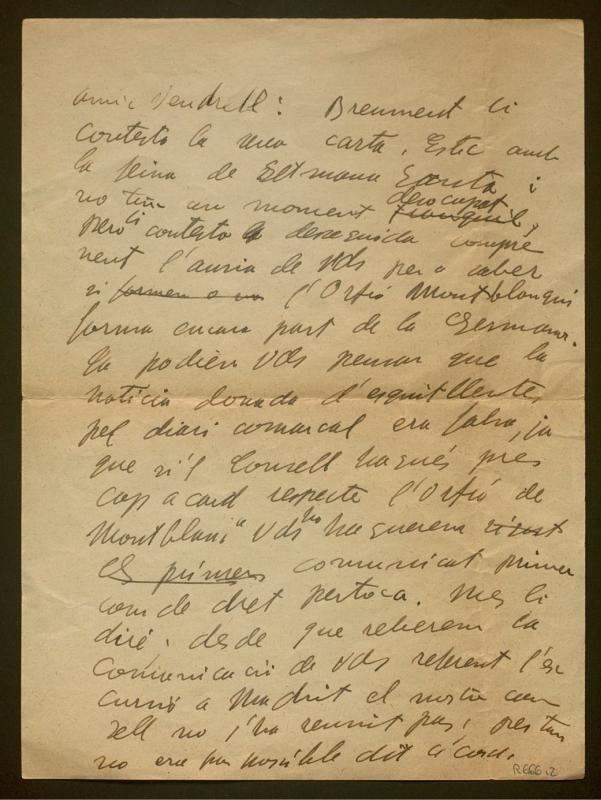 amic Vendrell: Breument li
contesto la seva carta. Estic amb
la feina de Setmana Santa i
no tinc un moment desocupat
tranquil,
pero li contesto deseguida compre
nent l'ansia de Vds per a saber
si formen o no l'Orfió Montblanqui
forma encara part de la Germanor.
Ja podien Vds pensar que la
noticia donada d'esquitllentes
pel diari comarcal era falsa, ja
que si'l Consell hagués pres
cap acord respecte l'Orfió de
Montblanc a Vds ho haguerem
els primers comunicat primer
com de dret pertoca. Mes li
diré: desde que reberem la
comunicació de Vds referent l'es
cursió a Madrit el nostre con
sell no s'ha reunit pas, per tan
no era pas posible dit acord.
R.666.2